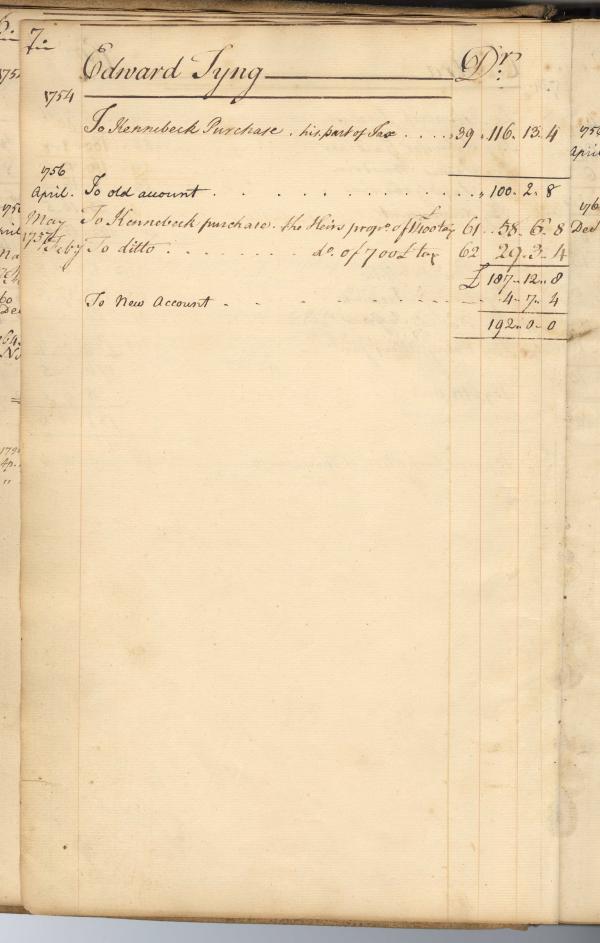 7.
Edward Tyng Dr.
1754
To Kennebeck Purchase . his part of Tax . . . . 39 . 116 . 13 . 4
1756
April . To old account . . . . . . . . . . . 100 . 2 . 8
May To Kennebeck purchase . the Heirs propn. of £ tax 61 . 58 . 6 . 8
1757 Feby To ditto . . . . . . . . do. of 700 £ tax 62 29 . 3 . 4
£ 187 . 12 . 8
To New Account . . . . . 4 . 7 . 4
192 . 0 . 0